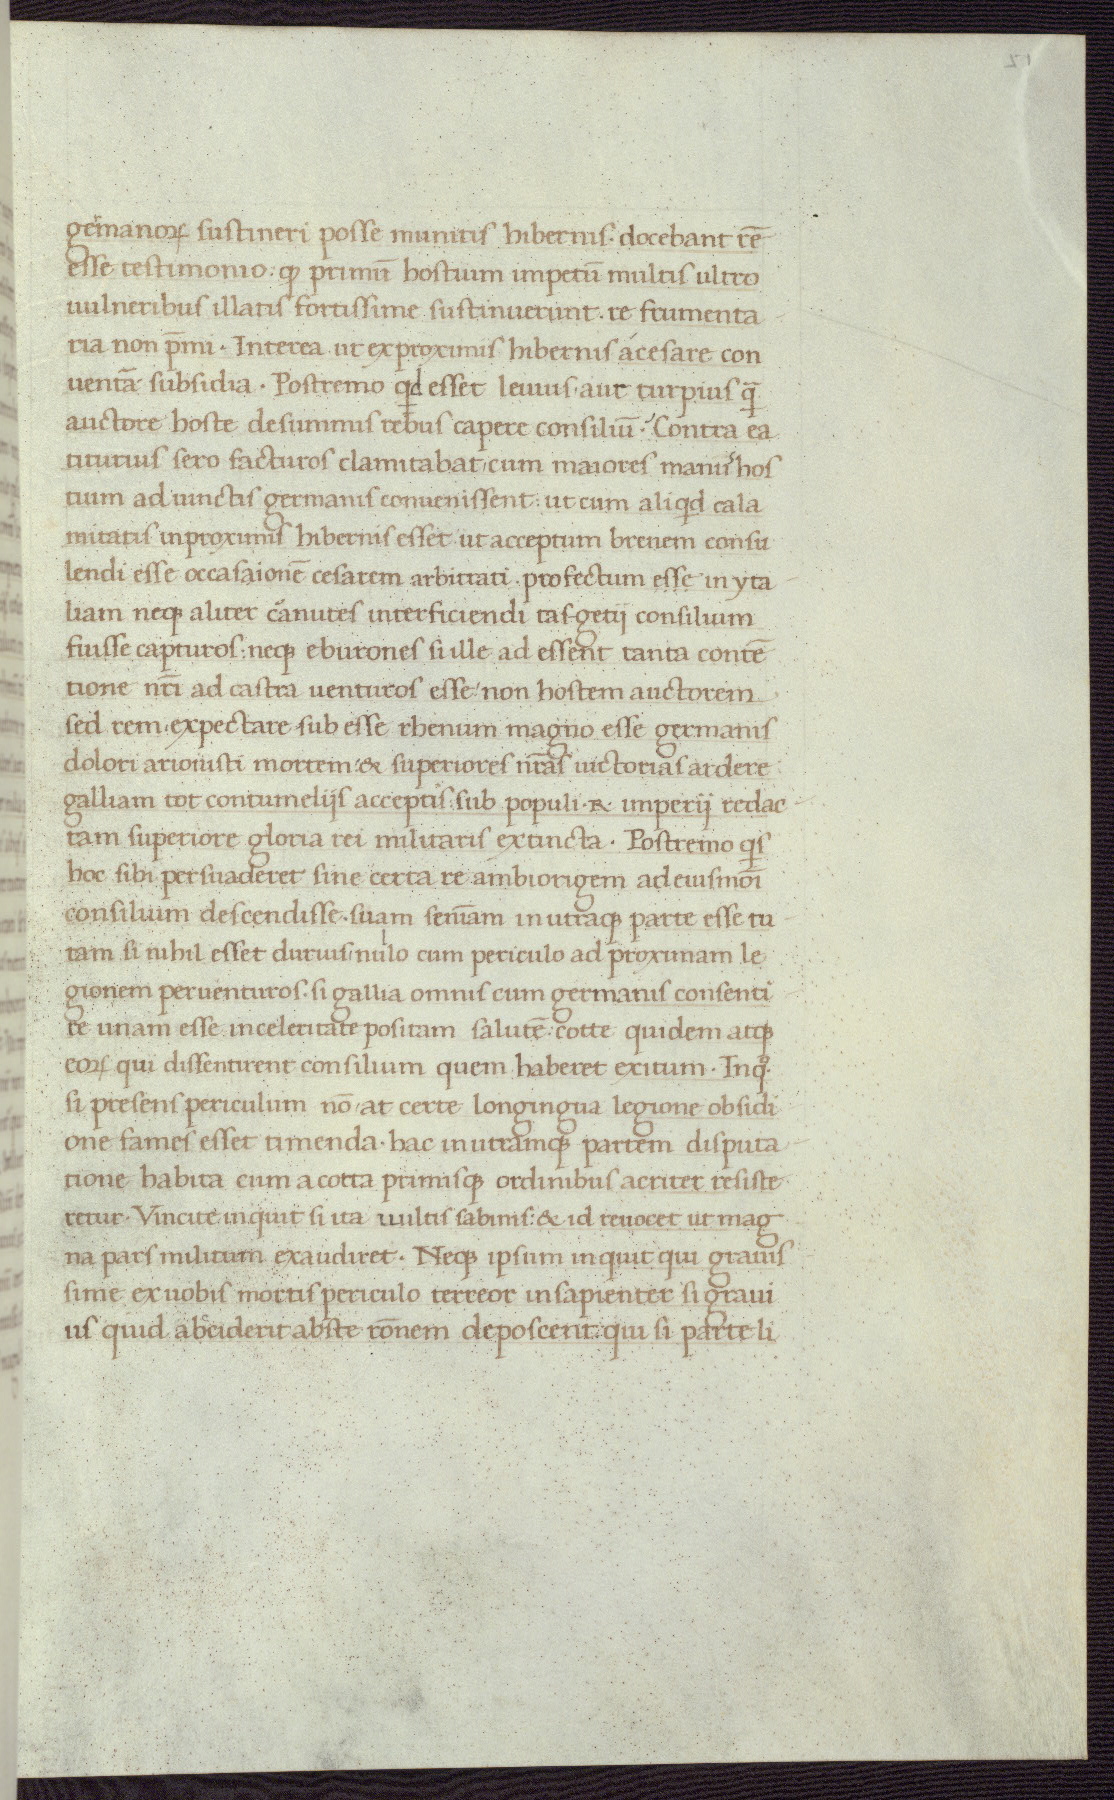 germanoꝝ sustineri posse munitis hibernis· docebant rē
esse testimonio: ꝙ primū hostium impetū multis ultro
uulneribus illatis fortissime sustinuerunt· re frumenta
ria non p̄mi· Interea ut ex proximis hibernis a cesare con
uentā subsidia· Postremo qd esset leuius aut turpius qȝ
auctore hoste de summis rebus capere consiliū· Contra ea
titurius sero facturos clamitabat cum maiores manus hos
tium ad uinctis germanis conuenissent: ut cum aliqd cala
mitatis in proximis hibernis esset ut acceptum breuem consu
lendi esse occasaionē cesarem arbitrati· profectum esse in yta
liam neqꝫ aliter carnutes interficiendi tasgetij consilium
fuisse capturos: neqꝫ eburones si ille ad essent tanta contē
tione nr̄i ad castra uenturos esse non hostem auctorem
sed rem expectare sub esse rhenum magno esse germanis
dolori ariouisti mortem & superiores nr̄as uictorias ardere
galliam tot contumelijs acceptis sub populi· R· imperij redac
tam superiore gloria rei militaris extincta· Postremo qs
hoc sibi persuaderet sine certa re ambiorigem ad eiusmōi
consilium descendisse· suam sentm̄am in utraqꝫ parte esse tu
tam si nihil esset durius nullo cum periculo ad proximam le
gionem peruenturos· si gallia omnis cum germanis consenti
re unam esse in celeritate positam salutē· cotte quidem atqꝫ
eoꝝ qui dissentirent consilium quem haberet exitum· In q̊·
si presens periculum nō at certe longingua legione obsidi
one fames esset timenda· hac in utramqꝫ partem disputa
tione habita cum a cotta primisqꝫ ordinibus acriter resiste
retur· Vincite inquit si ita uultis sabinis: & id reuocet ut mag
na pars militum exaudiret· Neqꝫ ipsum inquit qui grauis
sime ex uobis mortis periculo terreor insapienter si graui
us quid abciderit abste rōnem deposcent: qui si parte li